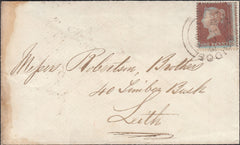 Messrs Robertson, Brothers
40 Timber Bush
Leith